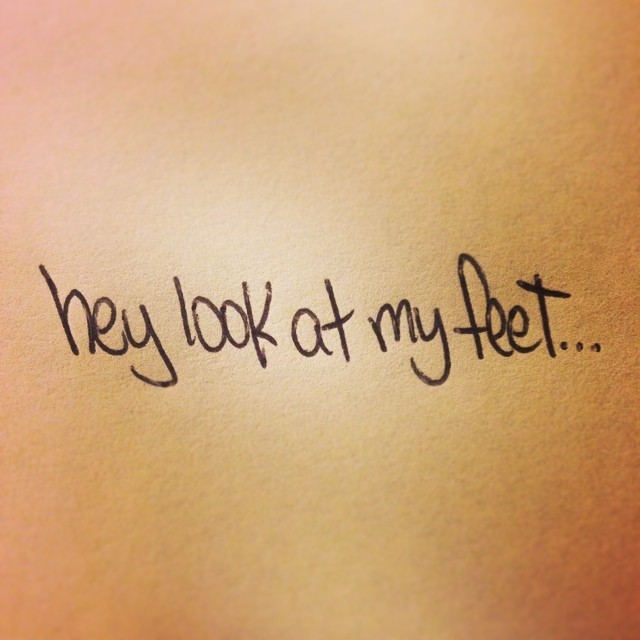 hey look at my feet...